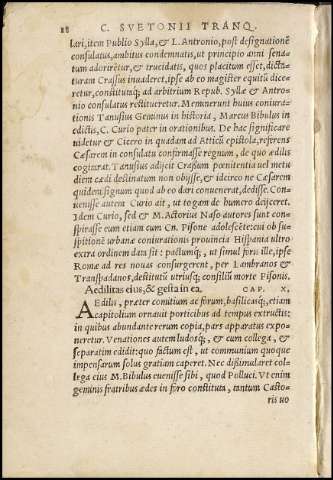 88 C. SVETONII TRANQ.
lari, item Publio Sylla, & L. Antonio, post designationē
consulatus, ambitus condemnatis, ut principio anni sena
tum adorirētur, & trucidatis, quos placitum esset, dicta
turam Crassus inuaderet, ipse ab eo magister equitū dice
retur, constitutaq; ad arbitrium Repub. Syllæ & Antro-
nio consulatus restitueretur. Meminerunt huius coniura-
tionis Tanusius Geminus in historia, Marcus Bibulus in
edictis, C. Curio pater in orationibus. De hac significare
uidetur & Cicero in quadam ad Atticū epistola, referens
Cæsarem in consulatu confirmasse regnum, de quo ædilis
cogitarat. Tanusius adijcit Crassum pœnitentia uel metu
diem cædi destinatum non obijsse, & idcirco ne Cæsarem
quidem signum quod ab eo dari conuenerat, dedisse. Con
uenisse autem Curio ait, ut togam de humero deijceret.
Idem Curio, sed & M. Actorius Naso autores sunt con-
spirasse eum etiam cum Cn. Pisone adolescēte: cui ob su-
spitionē urbanæ coniurationis prouincia Hispania ultro
extra ordinem data sit: pactumq;, ut simul foris ille, ipse
Romæ ad res nouas consurgerent, per Lambranos &
Transpadanos, destitutū utriusq; consiliū morte Pisonis.
Aedilitas eius, & gesta in ea. CAP. X,
AEdilis, præter comitium ac forum, basilicasq;, etiam
capitolium ornauit porticibus ad tempus extructis:
in quibus abundante rerum copia, pars apparatus expo-
neretur. Venationes autem ludosq;, & cum collega, &
separatim edidit: quo factum est, ut communium quoque
impensarum solus gratiam caperet. Nec dissimularet col-
lega eius M. Bibulus euenisse sibi, quod Polluci. Vt enim
geminis fratribus ædes in foro constituta, tantum Casto-
ris uo